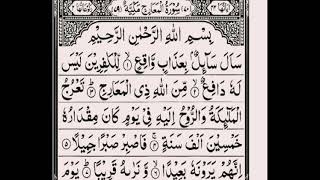 سُوْرَةُ الْمَعَارِجِ مَكِّيَّةٌ
بِسْمِ اللّٰهِ الرَّحْمٰنِ الرَّحِيْمِ
سَاَلَ سَآئِلٌۢ بِعَذَابٍ وَّاقِعٍۙ ۝۱ لِّلْكٰفِرِيْنَ لَيْسَ
لَهٗ دَافِعٌۙ ۝۲ مِّنَ اللّٰهِ ذِي الْمَعَارِجِؕ ۝۳ تَعْرُجُ
الْمَلٰٓئِكَةُ وَالرُّوْحُ اِلَيْهِ فِيْ يَوْمٍ كَانَ مِقْدَارُهٗ
خَمْسِيْنَ اَلْفَ سَنَةٍۚ ۝۴ فَاصْبِرْ صَبْرًا جَمِيْلًا ۝۵
اِنَّهُمْ يَرَوْنَهٗ بَعِيْدًاۙ ۝۶ وَّنَرٰىهُ قَرِيْبًاؕ ۝۷ يَوْمَ